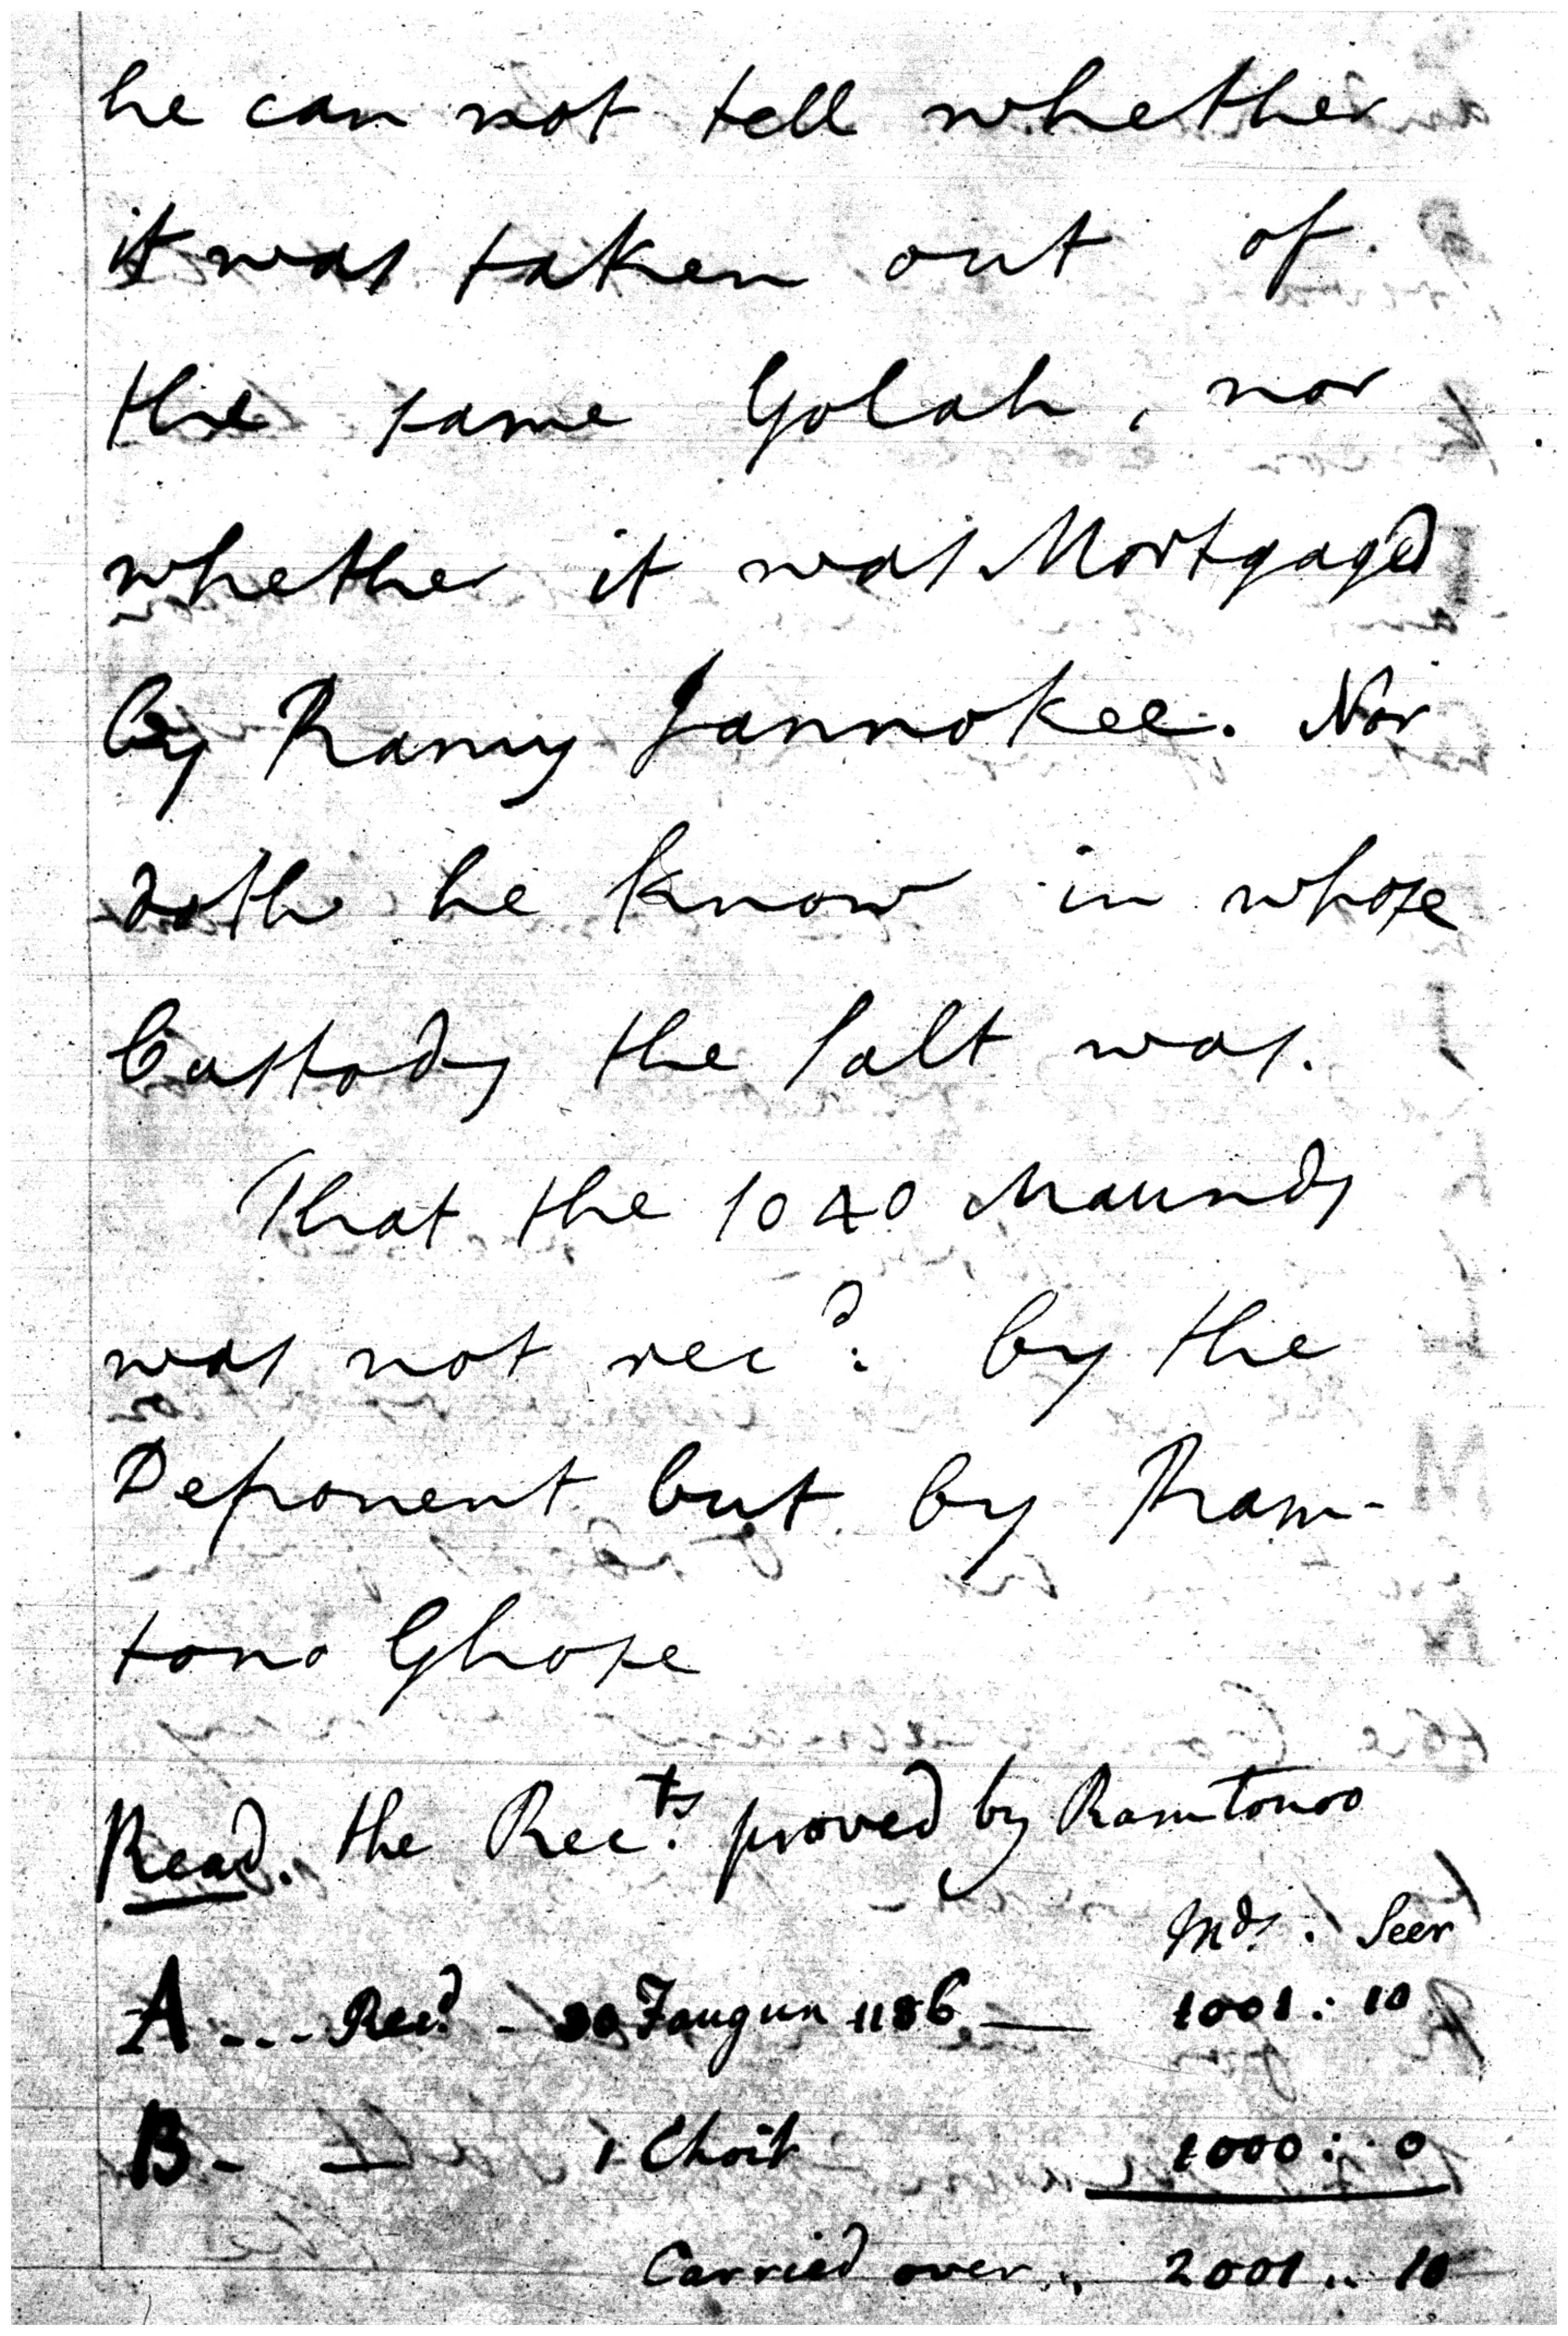 he can not tell whether
it was taken out of
the same Golah, nor
whether it was Mortgaged
by Ranny Jannokee. Nor
doth he know in whose
Custody the Salt was.
That the 1040 Maunds
was not recd. by the
Deponent but by Ram-
tono Ghose
Read. the Rects. proved by Ramtonoo
Mds. : Seer
A --- Recd - 30 Faugun 1186 — 1001 : 10
B - — 1 Choit 1000 : 0
Carried over .. 2001 .. 10